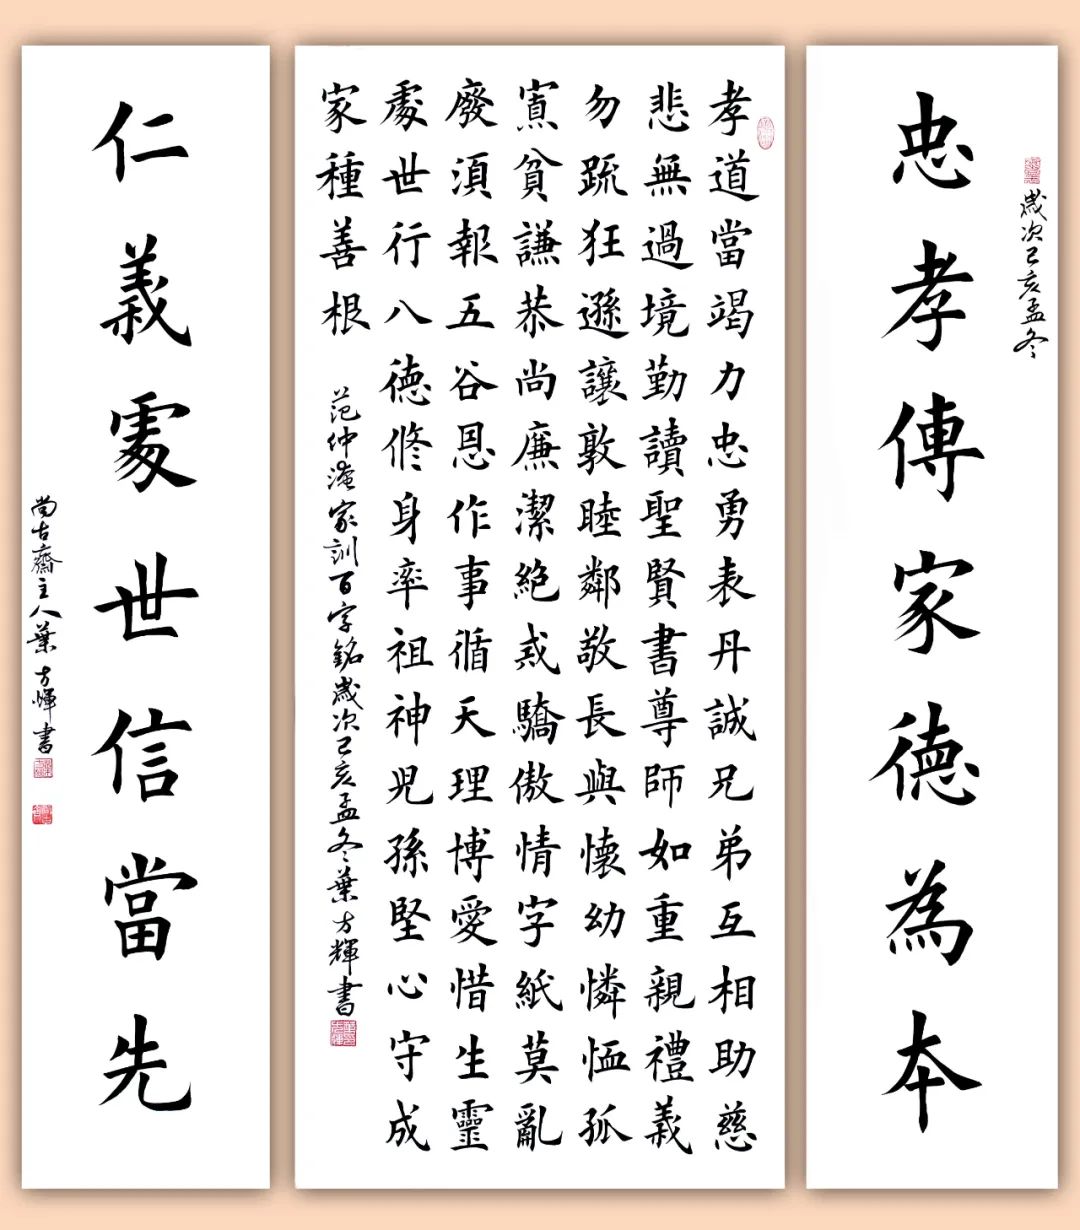 歲次己亥孟冬
忠孝傳家德為本
孝道當竭力忠勇表丹誠兄弟互相助慈
悲無過境勤讀聖賢書尊師如重親禮義
勿疏狂遜讓敦睦鄰敬長與懷幼憐恤孤
寡貧謙恭尚廉潔絕戒驕傲情字紙莫亂
廢須報五谷恩作事循天理博愛惜生靈
處世行八德修身率祖神兒孫堅心守成
家種善根
范仲淹家訓百字銘歲次己亥孟冬葉方輝書
仁義處世信當先
尚古齋主人葉方輝書